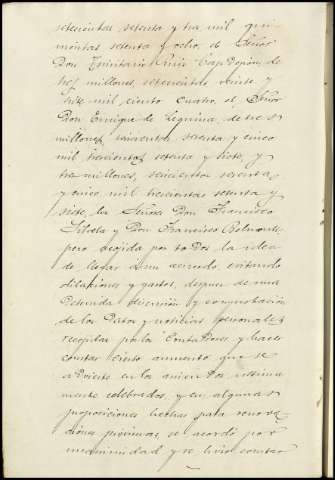 setecientas setenta y tres mil qui-
nientas setenta y ocho, el Señor
Don Trinitario Ruiz Capdepón, de
tres millones, setecientas veinte y
tres mil ciento cuatro, el Señor
Don Enrique de Leguina, de tres
millones seiscientas setenta y cinco
mil trescientas setenta y siete, y
tres millones, seiscientas setenta
y cinco mil trescientas setenta y
siete, los Señores Don Francisco
Silvela y Don Francisco Belmonte,
pero acogida por todos la idea
de llegar á un acuerdo, evitando
dilaciones y gastos, despues de una
detenida discusión y comprobación
de los datos y noticias personales
recogidas por los Contadores y hacer
constar cierto aumento que se
advierte en los arriendos ultima-
mente celebrados, y en algunas
proposiciones hechas para renova-
ciones próximas, se acordó por
unanimidad y se hizo constar